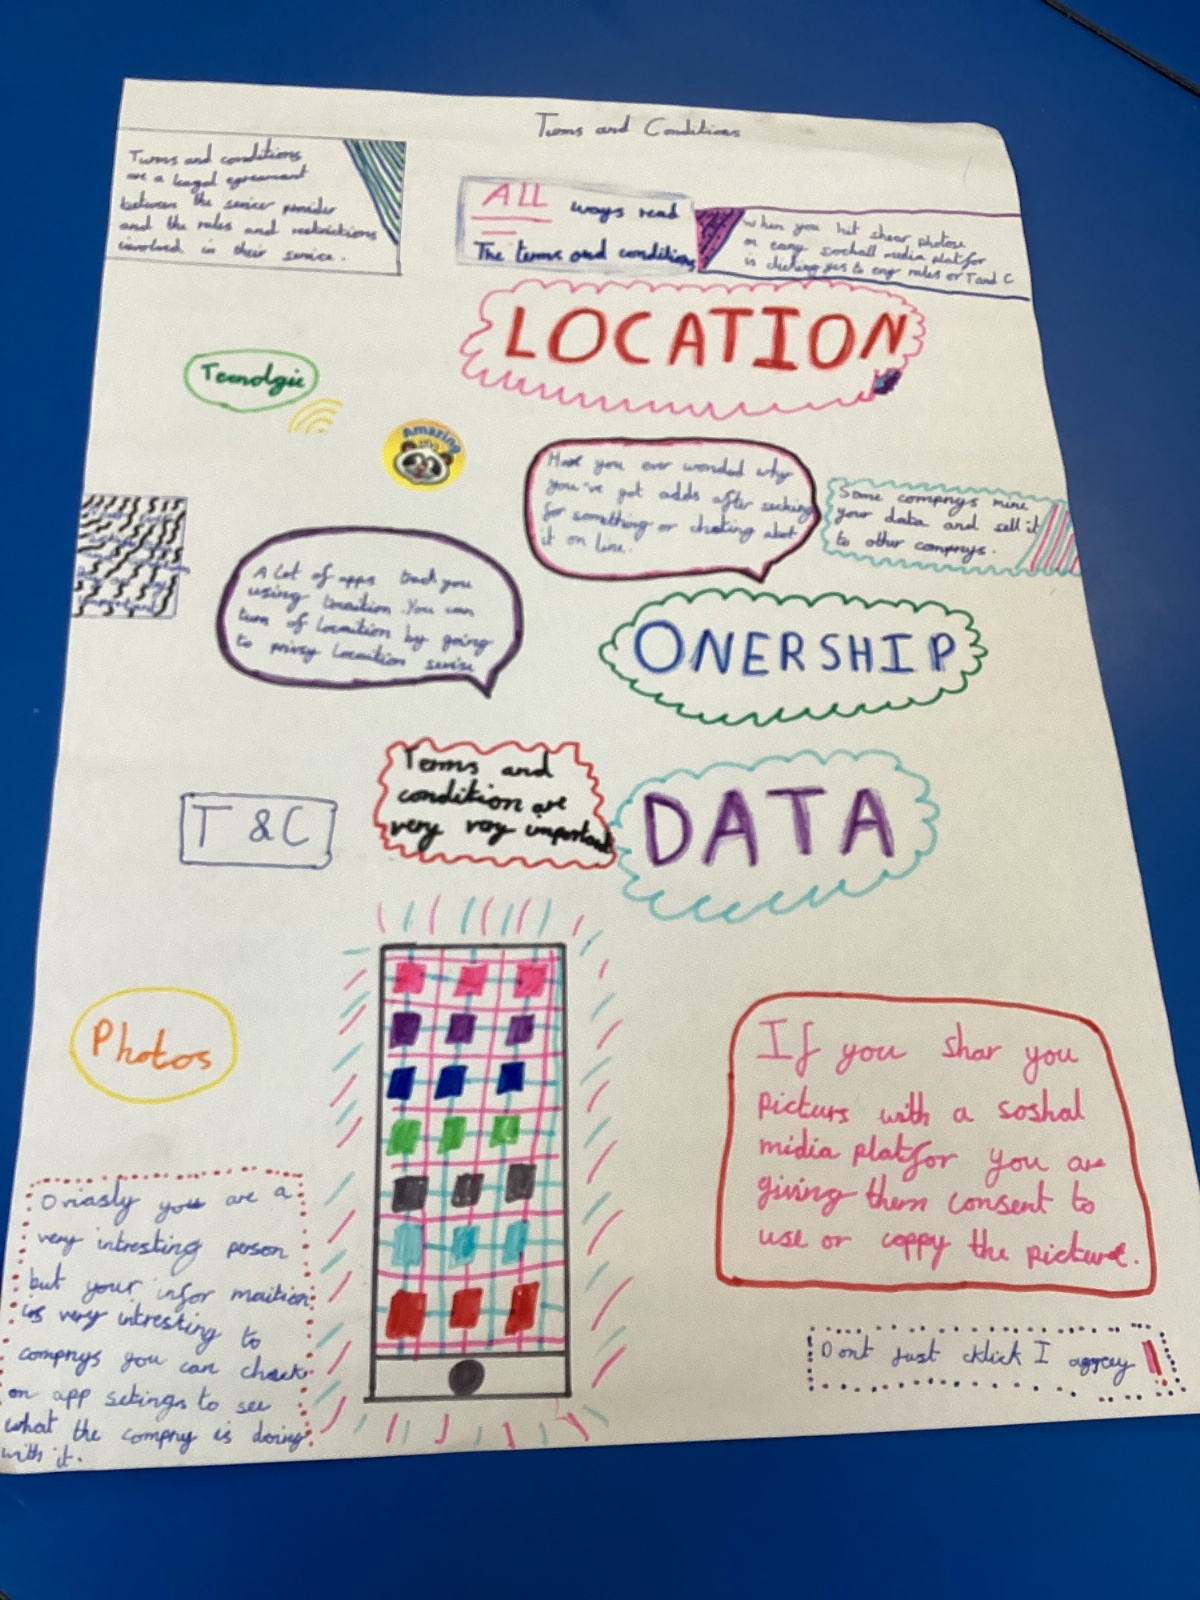 Terms and Conditions
Turms and conditions
are a leagal agreamant
between the service provider
and the rules and restrictions
involved in their service.
ALL ways read
The terms and conditions
when you hit shear photose
on eany soshall media platfor
is clicking yes to eny rules or T and C
LOCATION
Tecnolgie
Amazing
Have you ever wonded why
you've got adds after seching
for something or cheking abot
it on line.
Some compnys mine
your data and sell it
to other compnys.
A lot of apps track you
using locaition. You can
turn of locaition by going
to privisy locaition servise
ONERSHIP
Terms and
condition are
very very important
T & C
DATA
Photos
If you shar you
picturs with a soshal
midia platfor you are
giving them consent to
use or coppy the picture.
Oviasly you are a
very intresting person
but your infor maition
is very intresting to
compnys you can check
on app setings to see
what the compny is doniy
with it.
Dont Just cklick I aggrey!